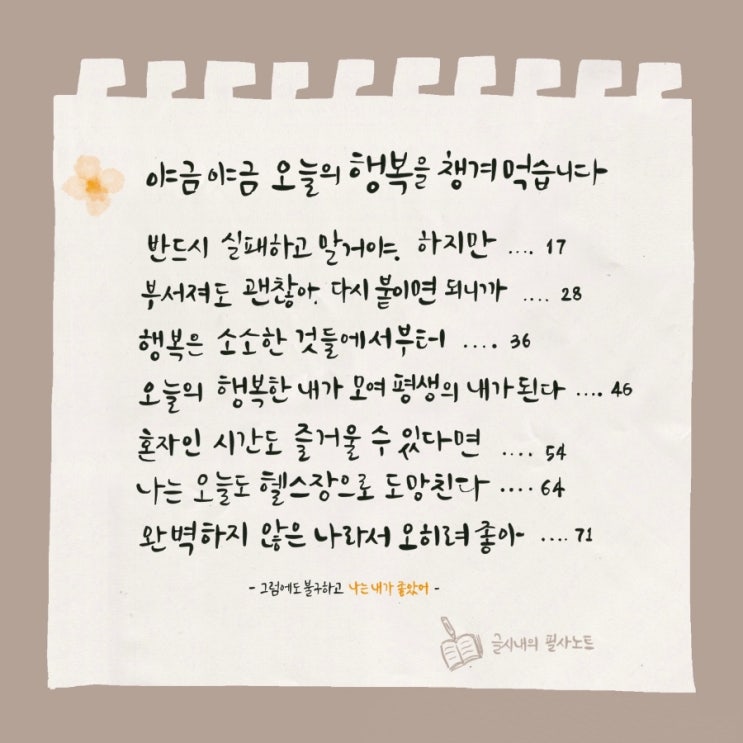 야금야금 오늘의 행복을 챙겨 먹습니다
반드시 실패하고 말거야. 하지만 .... 17
부서져도 괜찮아. 다시 붙이면 되니까 .... 28
행복은 소소한 것들에서부터 .... 36
오늘의 행복한 내가 모여 평생의 내가 된다 .... 46
혼자인 시간도 즐거울 수 있다면 .... 54
나는 오늘도 헬스장으로 도망친다 .... 64
완벽하지 않은 나라서 오히려 좋아 .... 71
- 그럼에도 불구하고 나는 내가 좋았어 -
글시내의 필사노트